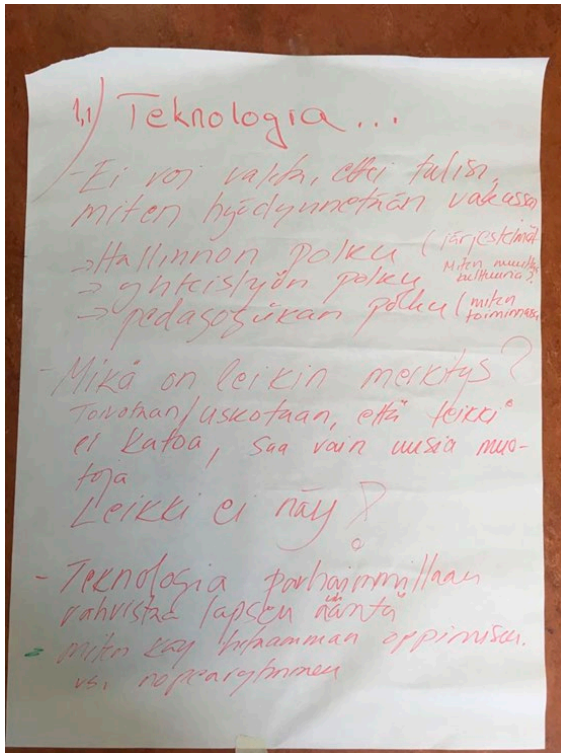 1,1) Teknologia...
- Ei voi valita, ettei tulisi,
miten hyödynnetään vakassa
→ Hallinnon polku (järjestelmät
→ yhteistyön polku Miten muuttaa kulttuuria?
→ pedagogiikan polku (miten toiminnassa
- Mikä on leikin merkitys?
Toivotaan/uskotaan, että leikki
ei katoa, saa vain uusia muo-
toja
Leikki ei näy?
- Teknologia parhaimmillaan
vahvistaa lapsen ääntä
- miten käy hitaamman oppimisen.
vs. nopearytminen